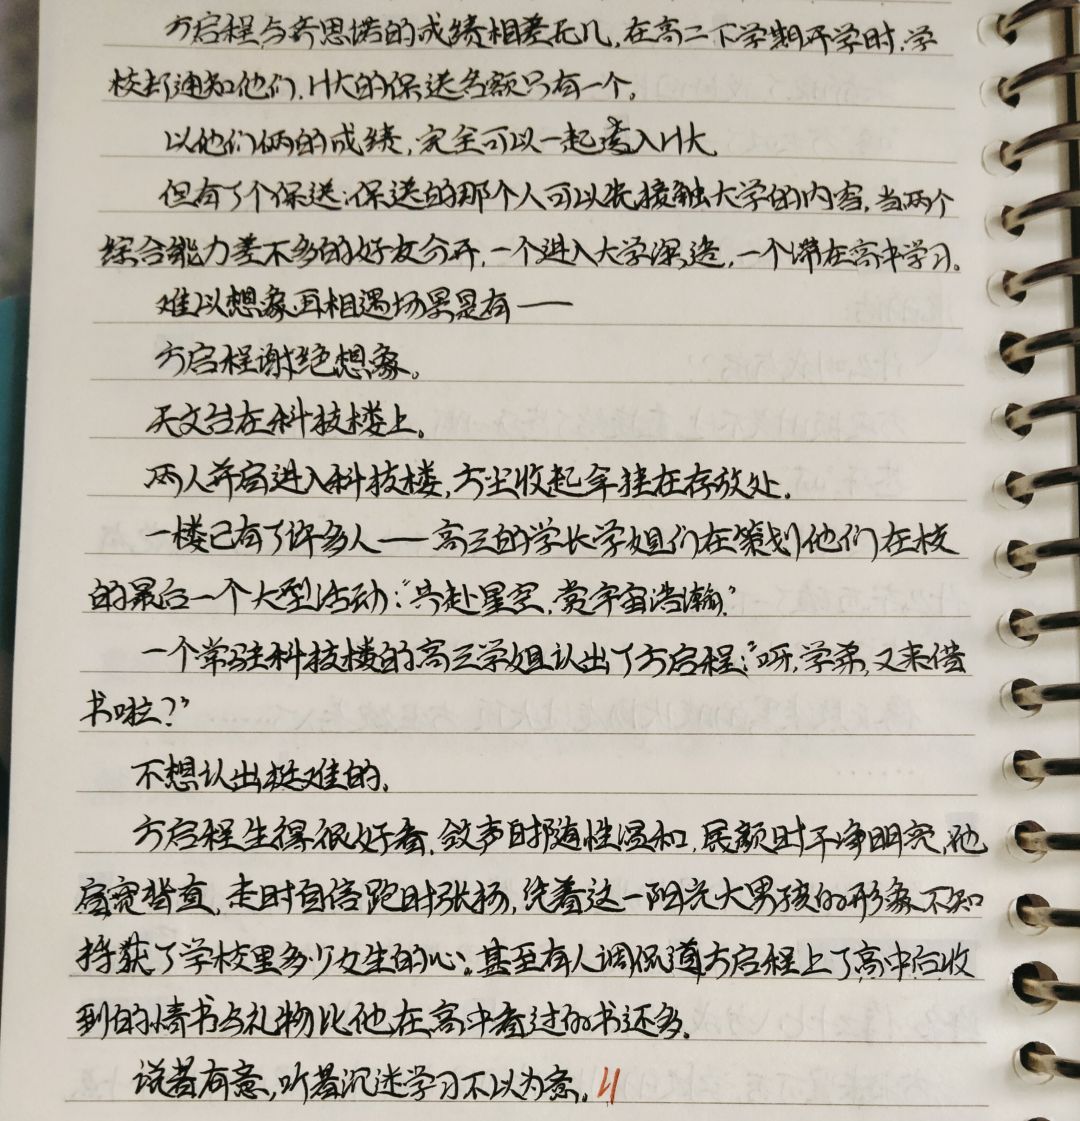 方启程与乔思诺的成绩相差无几,在高二下学期开学时,学
校却通知他们,H大的保送名额只有一个。
以他们俩的成绩,完全可以一起考入H大
但有了个保送,保送的那个人可以先接触大学的内容,当两个
综合能力差不多的好友分开,一个进入大学深造,一个滞在高中学习。
难以想象再相遇场景是有——
方启程谢绝想象。
天文台在科技楼上。
两人并肩进入科技楼,方尘收起伞挂在存放处。
一楼已有了许多人——高三的学长学姐们在策划他们在校
的最后一个大型活动:“共赴星空,赏宇宙浩瀚”
一个常驻科技楼的高三学姐认出了方启程:“呀,学弟,又来借
书啦?”
不想认出挺难的。
方启程生得很好看,敛声时随性温和,展颜时干净明亮,他
肩宽背直,走时自信跑时张扬,凭着这一阳光大男孩的形象不知
捋获了学校里多少女生的心。甚至有人调侃道方启程上了高中后收
到的情书与礼物比他在高中看过的书还多。
说着有意,听着沉迷学习不以为意。4